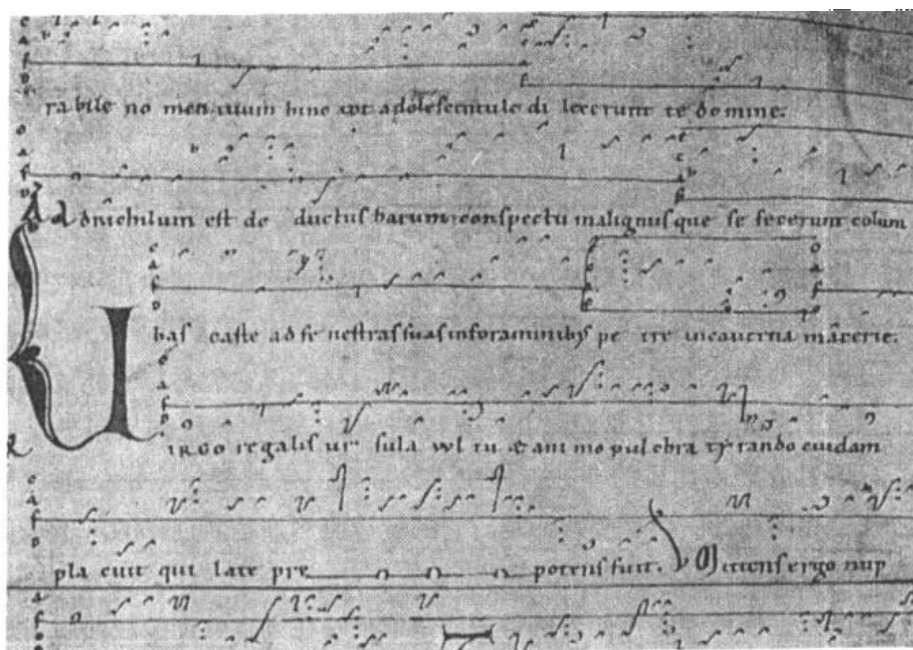 rabile nomen tuum hinc adolescentule dilexerunt te domine.
Ad nichilum est deductus harum conspectu malignusque se fecerunt colum
bas caste ad fenestras suas in foraminibus petre in caverna macerie.
VIRGO regalis ursula vultu & animo pulchra tyranno cuidam
placuit qui late prepotens fuit. V Mittens ergo nup